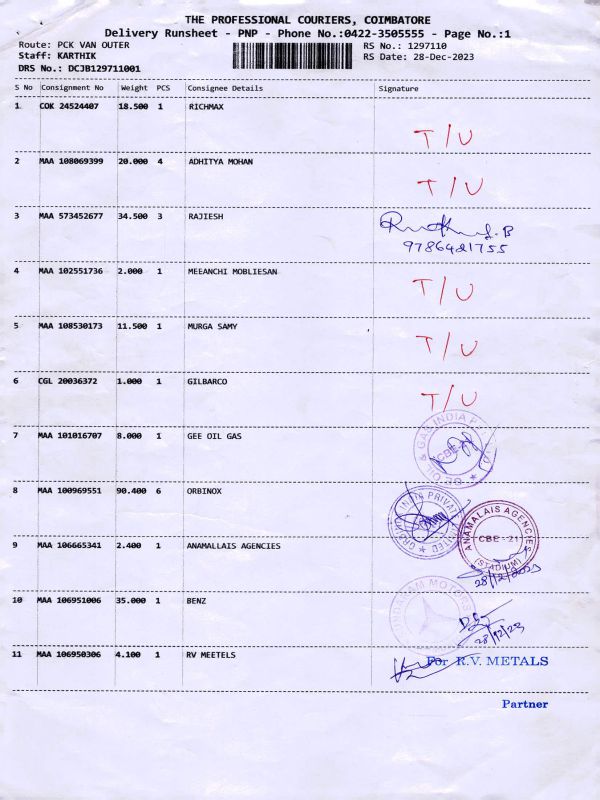 THE PROFESSIONAL COURIERS, COIMBATORE
Delivery Runsheet - PNP - Phone No.:0422-3505555 - Page No.:1
Route: PCK VAN OUTER RS No.: 1297110
Staff: KARTHIK RS Date: 28-Dec-2023
DRS No.: DCJB129711001
S No Consignment No Weight PCS Consignee Details Signature
1 COK 24524407 18.500 1 RICHMAX
T/U
2 MAA 108069399 20.000 4 ADHITYA MOHAN
T/U
3 MAA 573452677 34.500 3 RAJIESH
9786421755
4 MAA 102551736 2.000 1 MEEANCHI MOBLIESAN
T/U
5 MAA 108530173 11.500 1 MURGA SAMY
T/U
6 CGL 20036372 1.000 1 GILBARCO
T/U
7 MAA 101016707 8.000 1 GEE OIL GAS
CBE
8 MAA 100969551 90.400 6 ORBINOX
INDIA PRIVATE LIMITED
9 MAA 106665341 2.400 1 ANAMALLAIS AGENCIES
ANAMALAIS AGENCIES
CBE - 21
(STADIUM)
28/12/2023
10 MAA 106951006 35.000 1 BENZ
MOTORS
28/12/23
11 MAA 106950306 4.100 1 RV MEETELS
For R.V. METALS
Partner